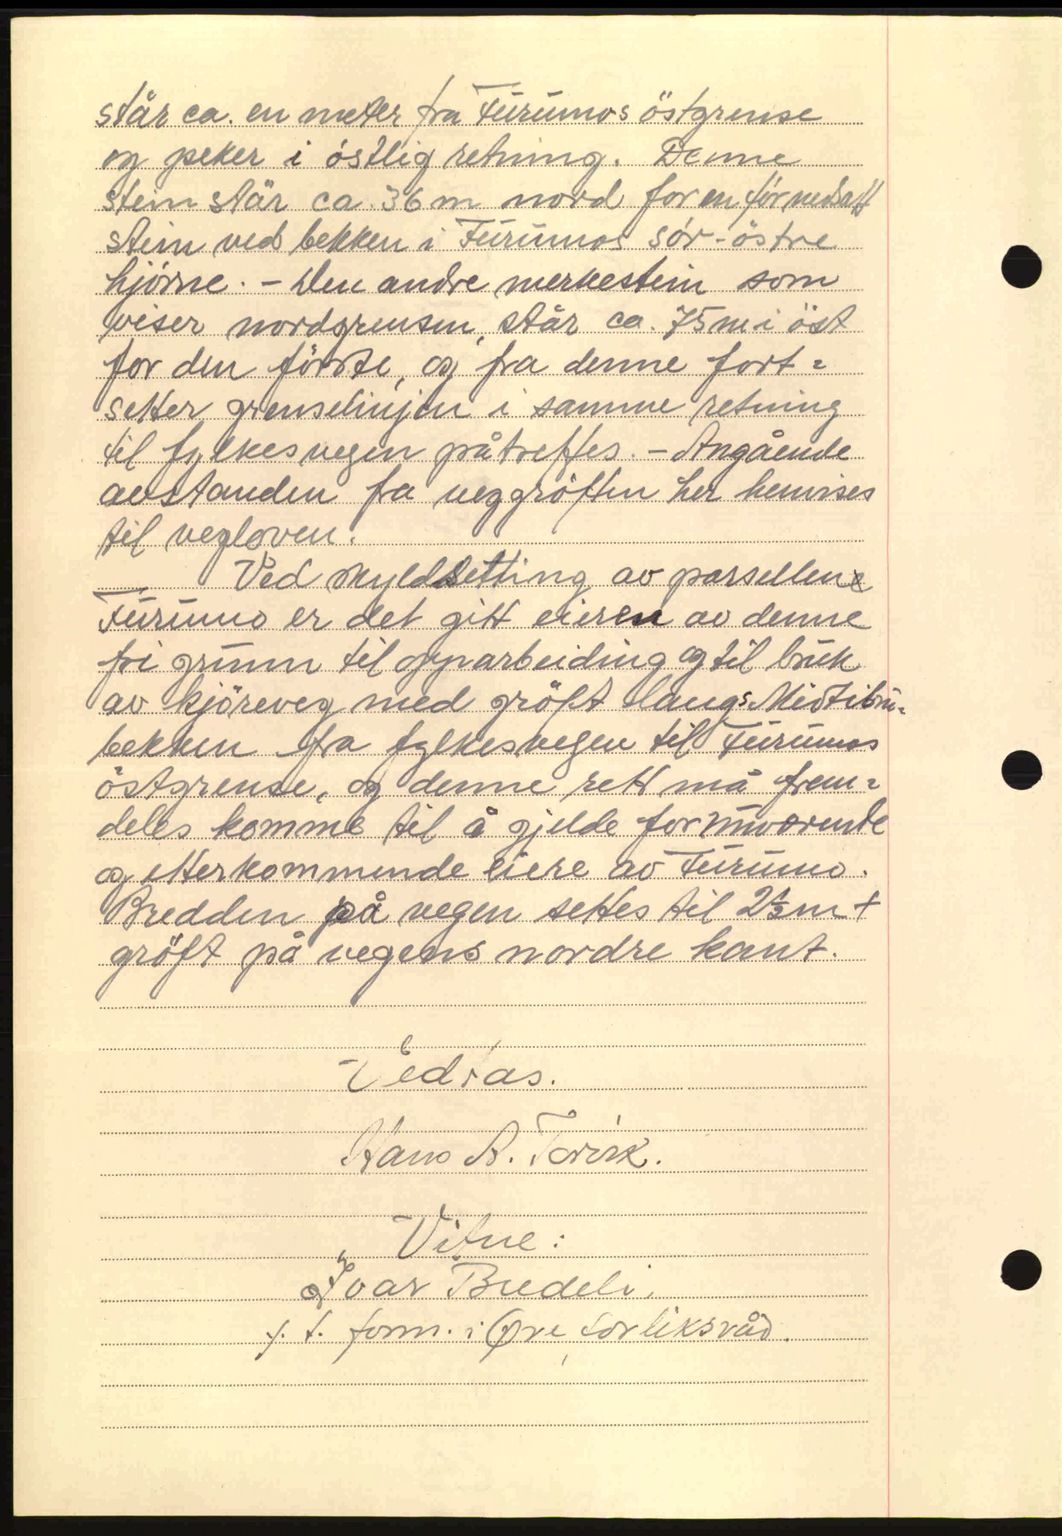 står ca. en meter fra Furumos östgrense
og peker i östlig retning. Denne
stein står ca. 36 m nord for en för nedsatt
stein ved bekken i Furumos sör-östre
hjörne. - Den andre merkestein som
viser nordgrensen, står ca. 75 m i öst
for den förste, og fra denne fort=
setter grenselinjen i samme retning
til fylkesvegen påtreffes. - Angående
avstanden fra veggröften her henvises
til vegloven.
Ved skyldsetting av parsellen
Furumo er det gitt eieren av denne
fri grunn til opparbeiding og til bruk
av kjöreveg med gröft langs Midtibu=
bekken fra fylkesvegen til Furumos
östgrense, og denne rett må frem=
deles komme til å gjelde for nuværende
og etterkommende eiere av Furumo.
Bredden på vegen settes til 2½ m +
gröft på vegens nordre kant.
Vedtas.
Hans A. Torvik.
Vitne:
Ivar Bredeli,
f. t. form. i Øre forliksråd.